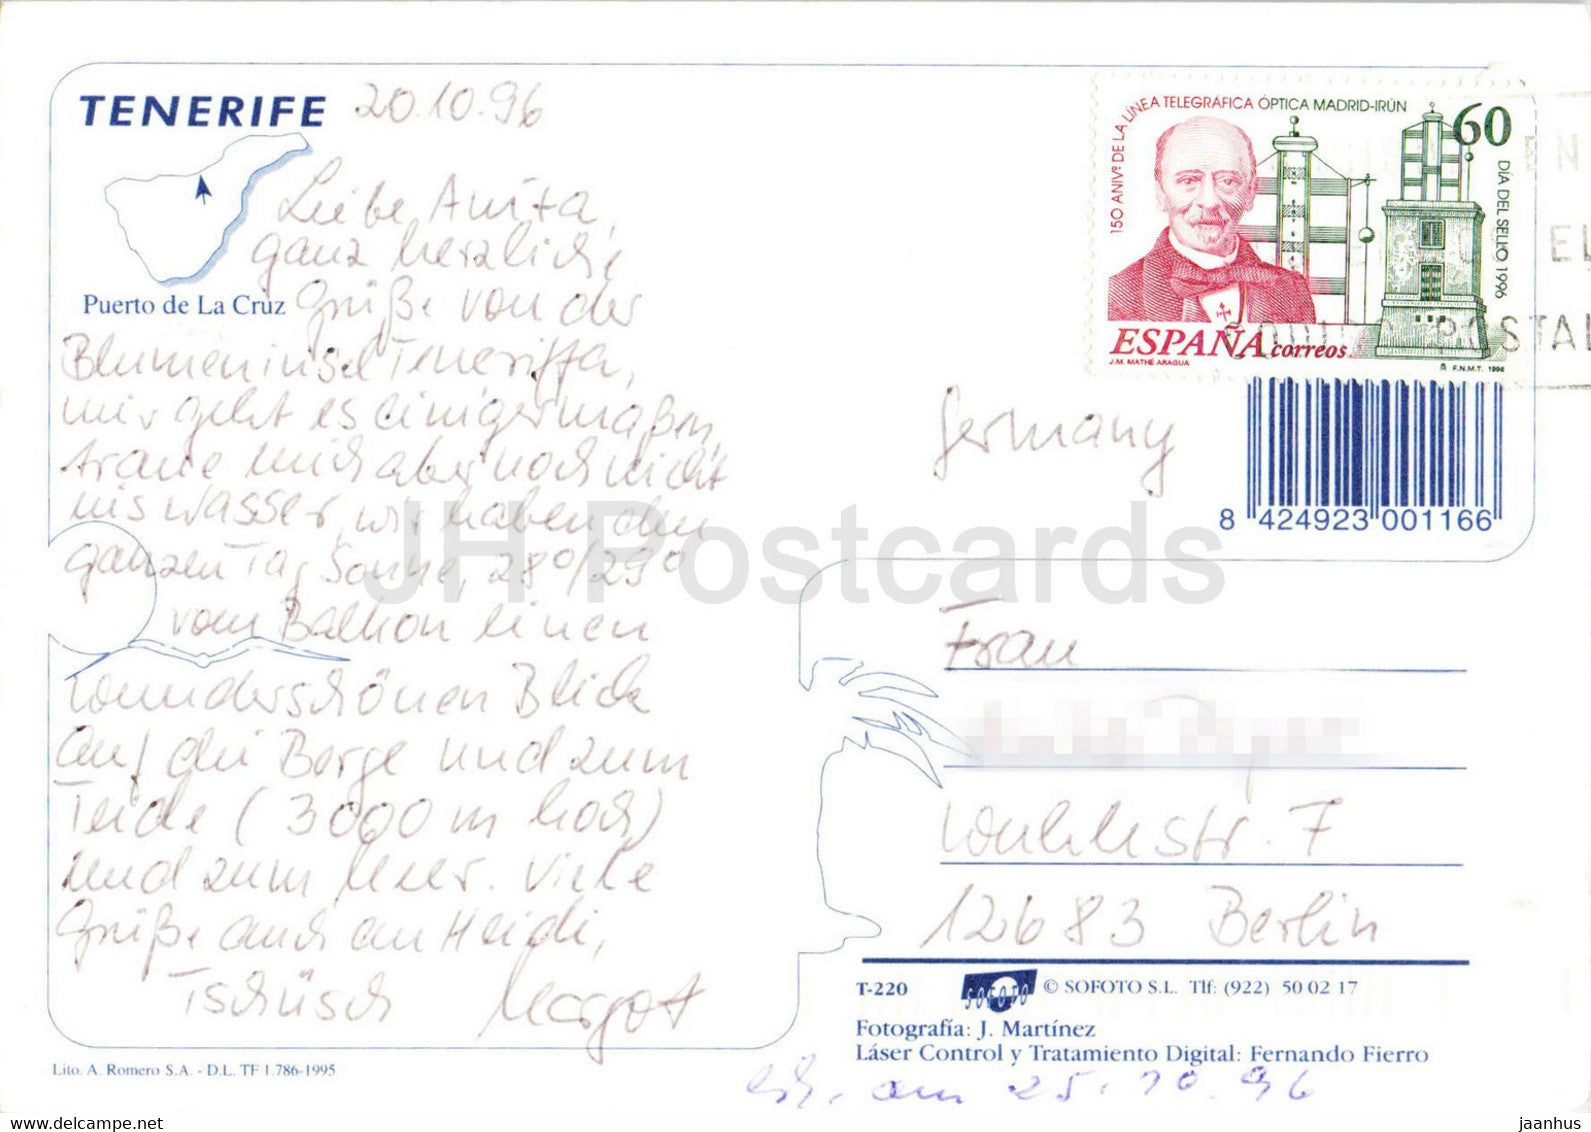 TENERIFE
20.10.96
Puerto de La Cruz
Liebe Anita,
ganz herzliche
Grüße von der
Blumeninsel Teneriffa,
mir geht es einigermaßen,
traue mich aber noch nicht
ins Wasser, wir haben den
ganzen Tag Sonne, 28°/29°
vom Balkon einen
wunderschönen Blick
auf die Berge und zum
Teide (3000 m hoch)
und zum Meer. Viele
Grüße auch an Heidi,
Tschüsch Margot
Lito. A. Romero S.A. - D.L. TF 1.786-1995
150 ANIVº DE LA LÍNEA TELEGRÁFICA ÓPTICA MADRID-IRÚN
60
DÍA DEL SELLO 1996
ESPAÑA correos
J.M. MATHÉ ARAGUA
F.N.M.T. 1996
POSTAL
Germany
8 424923 001166
JH Postcards
Frau
str. 7
12683 Berlin
T-220 SOFOTO © SOFOTO S.L. Tlf: (922) 50 02 17
Fotografía: J. Martínez
Láser Control y Tratamiento Digital: Fernando Fierro
am 25.10.96
www.delcampe.net
jaanhus